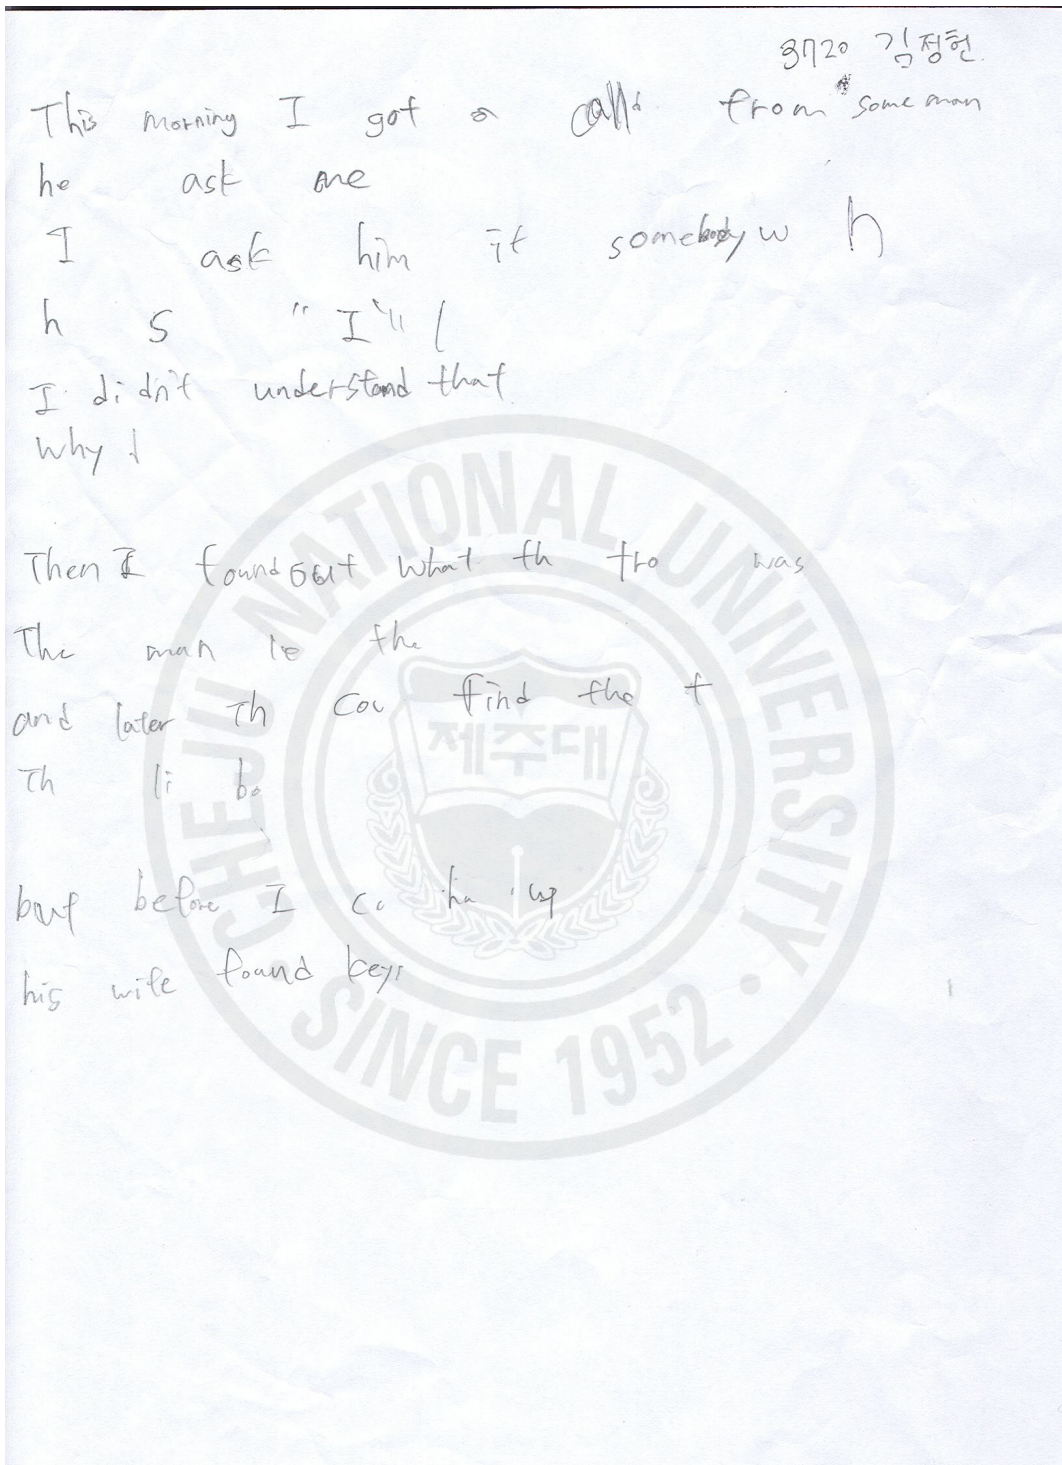 3720 김정헌
This morning I got a call from some man
he ask me
I ask him if somebody w h
h s "I"
I didn't understand that
why I
Then I found out what th tro was
The man le the
and later Th cou find the t
Th li bo
but before I co ha up
his wife found keys
CHEJU NATIONAL UNIVERSITY
제주대
SINCE 1952